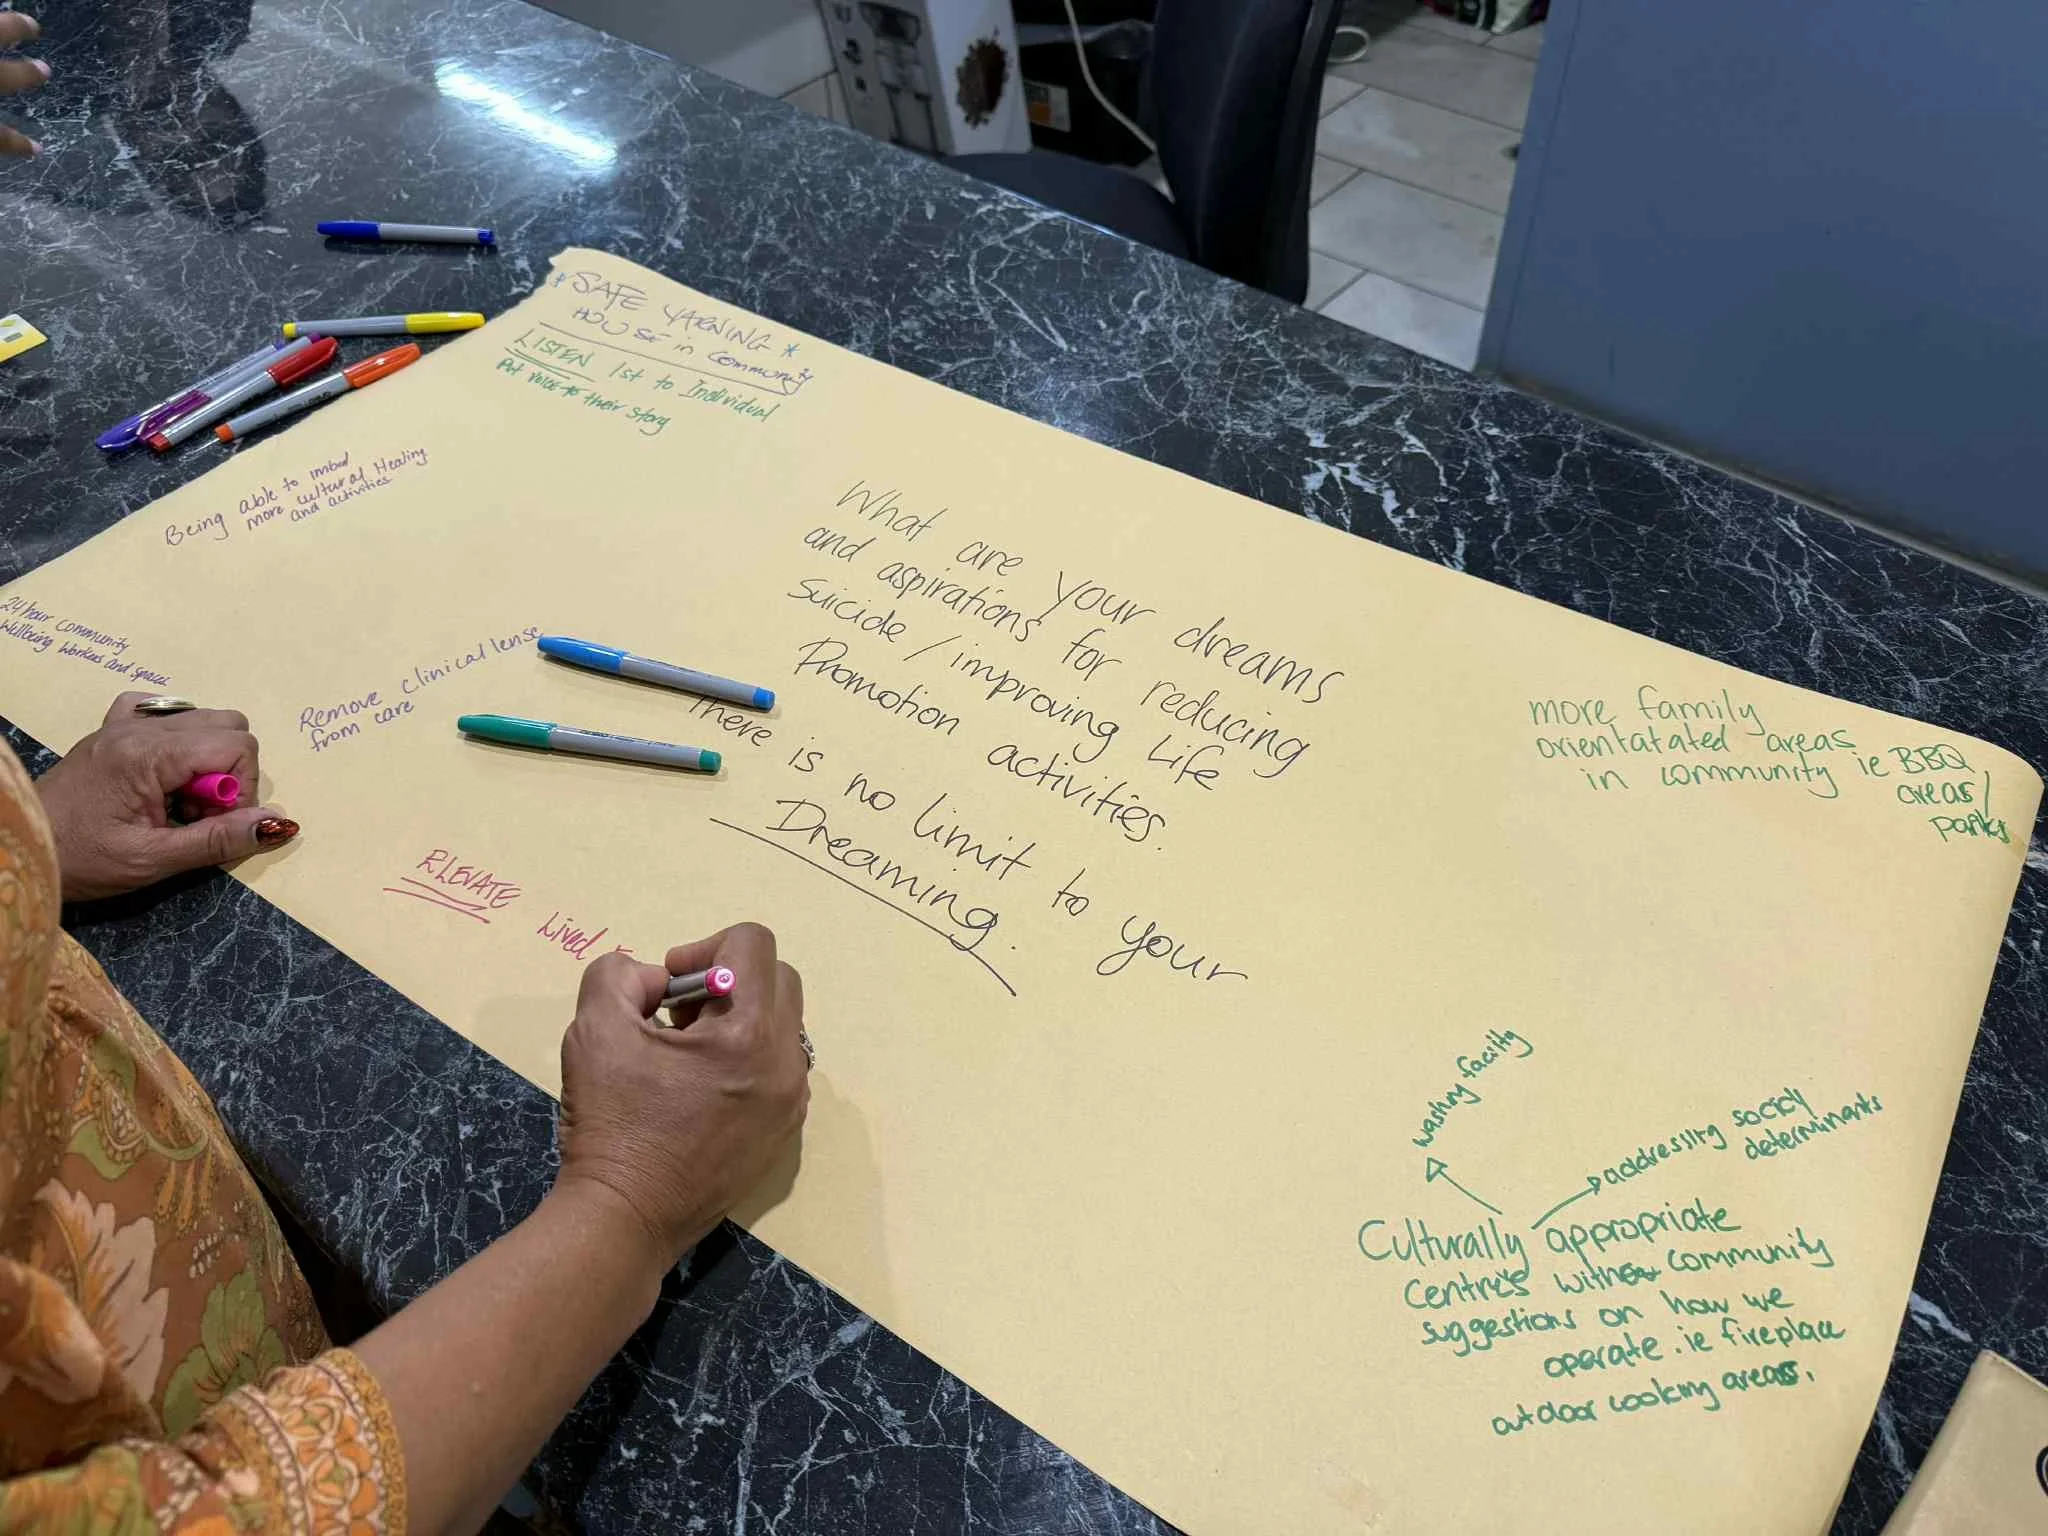 * SAFE YARNING *
HOUSE in Community
LISTEN 1st to Individual
Put voice to their story
Being able to imbed
more cultural Healing
and activities
24 hour community
Wellbeing Workers and spaces
Remove clinical lense
from care
What are your dreams
and aspirations for reducing
Suicide / improving Life
Promotion activities.
There is no limit to your
Dreaming.
ELEVATE Lived
more family
orientatated areas
in community ie BBQ
areas/
parks
washing facility
addressing socicly
determinants
Culturally appropriate
Centres with community
suggestions on how we
operate . ie fireplace
outdoor cooking areas.